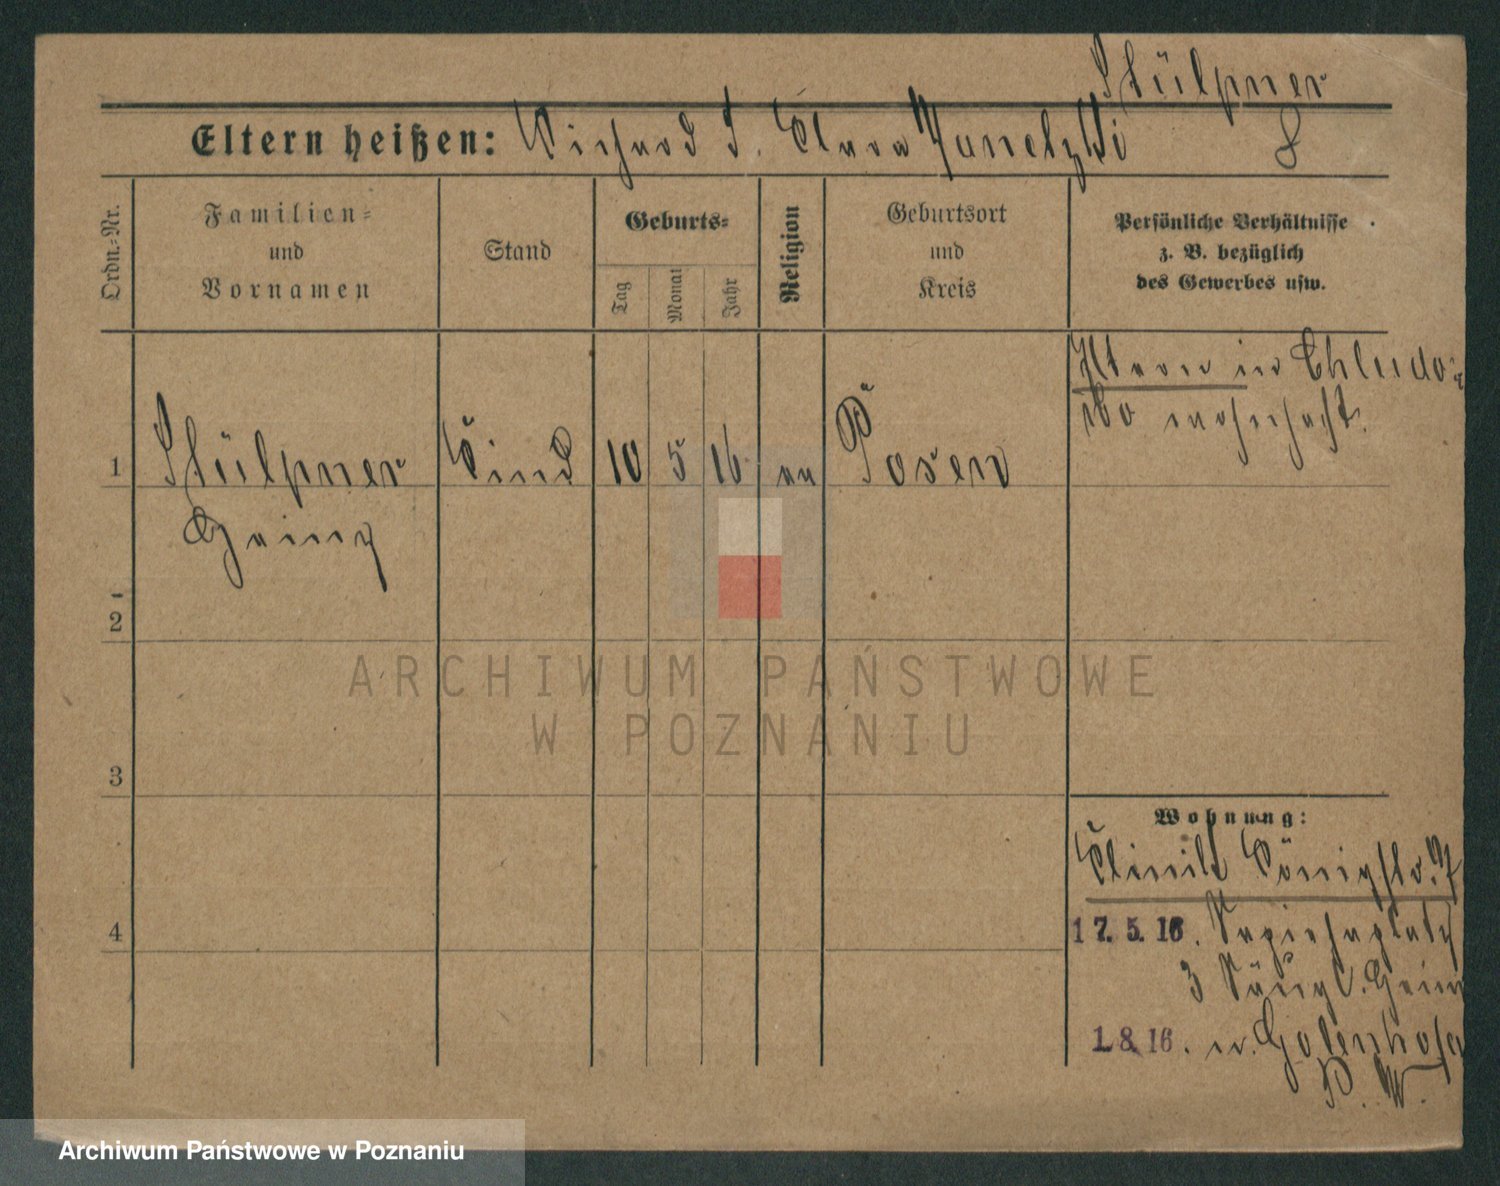 Stülpner
Eltern heißen: Richard S. Clara Janetzki
8
Ordn.-Nr.
Familien-
und
Vornamen
Stand
Geburts-
Tag
Monat
Jahr
Religion
Geburtsort
und
Kreis
Persönliche Verhältnisse
z. B. bezüglich
des Gewerbes usw.
Eltern in Chludo-
wo wohnhaft.
1 Stülpner Kind 10 5 16 ev Posen
Heinz
2
3
4
Wohnung:
Klinik Königstr. 7
17. 5. 16. Sapiehaplatz
3 Säugl. Heim
1. 8. 16. n. Golenhofen
P. W.
ARCHIWUM PAŃSTWOWE
W POZNANIU
Archiwum Państwowe w Poznaniu